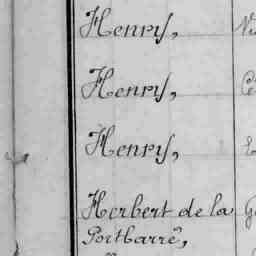 Henry,
Henry,
Henry,
Herbert de la
Portbarré,